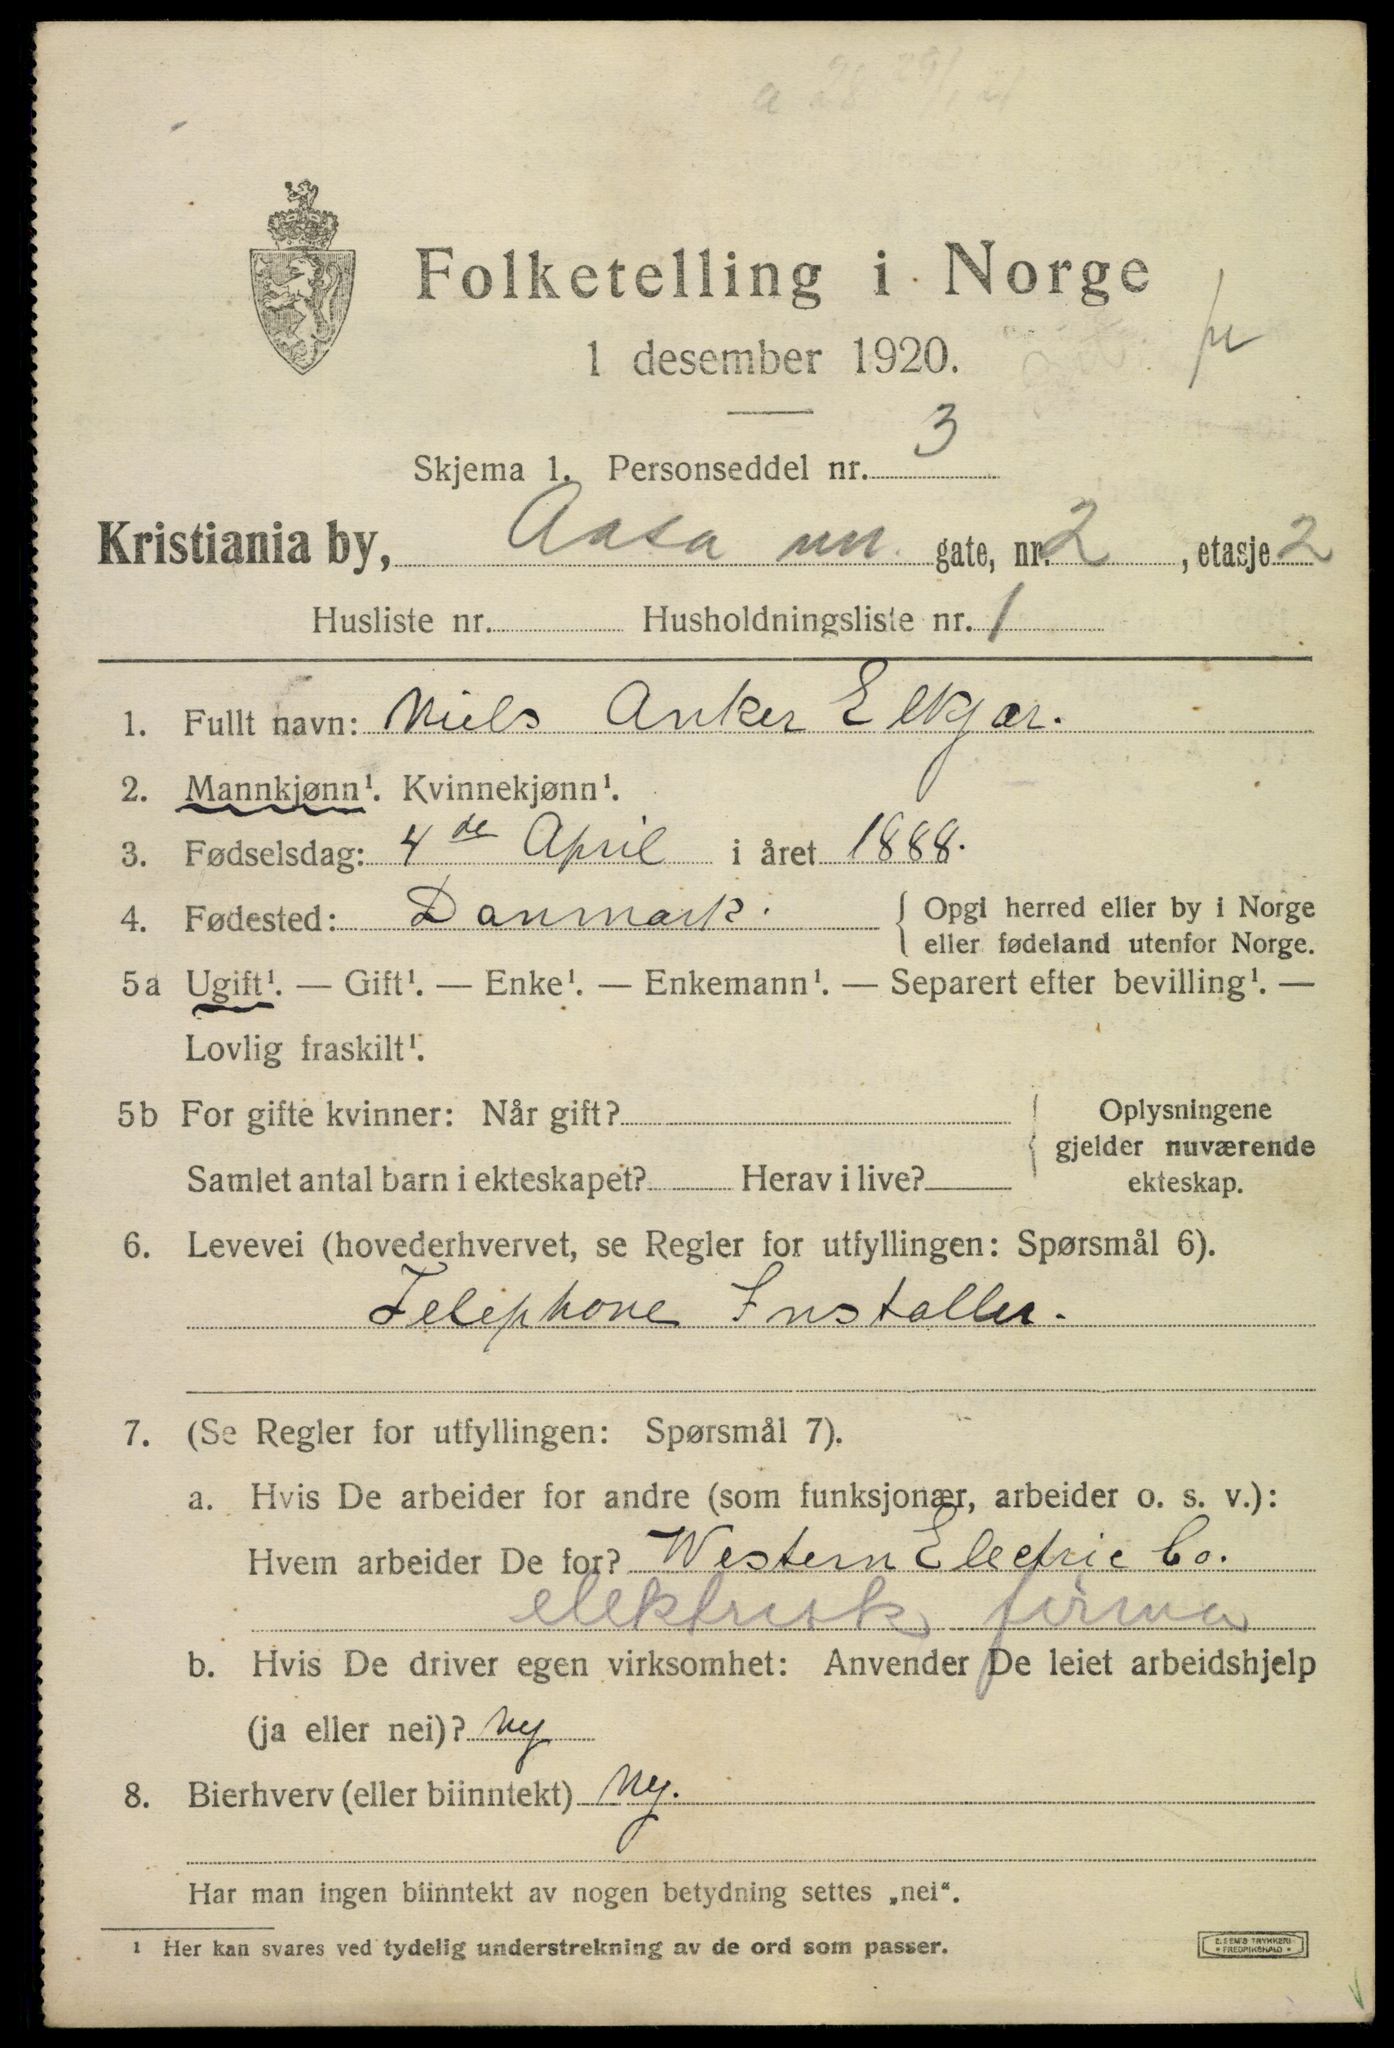 Folketelling i Norge
1 desember 1920.
Skjema 1. Personseddel nr. 3
Kristiania by, Aasa gate, nr. 2, etasje 2
Husliste nr. Husholdningsliste nr. 1
1. Fullt navn: Niels Anker Elkjær.
2. Mannkjønn¹. Kvinnekjønn¹.
3. Fødselsdag: 4de April i året 1888.
4. Fødested: Danmark. { Opgi herred eller by i Norge
eller fødeland utenfor Norge.
5a Ugift¹. — Gift¹. — Enke¹. — Enkemann¹. — Separert efter bevilling¹. —
Lovlig fraskilt¹.
5b For gifte kvinner: Når gift? { Oplysningene
gjelder nuværende
Samlet antal barn i ekteskapet? Herav i live? ekteskap.
6. Levevei (hovederhvervet, se Regler for utfyllingen: Spørsmål 6).
Telephone Installer.
7. (Se Regler for utfyllingen: Spørsmål 7).
a. Hvis De arbeider for andre (som funksjonær, arbeider o. s. v.):
Hvem arbeider De for? Western Electric Co.
elektrisk firma
b. Hvis De driver egen virksomhet: Anvender De leiet arbeidshjelp
(ja eller nei)? ny
8. Bierhverv (eller biinntekt) ny.
Har man ingen biinntekt av nogen betydning settes „nei“.
¹ Her kan svares ved tydelig understrekning av de ord som passer.
E. SEM'S TRYKKERI
* FREDRIKSHALD *